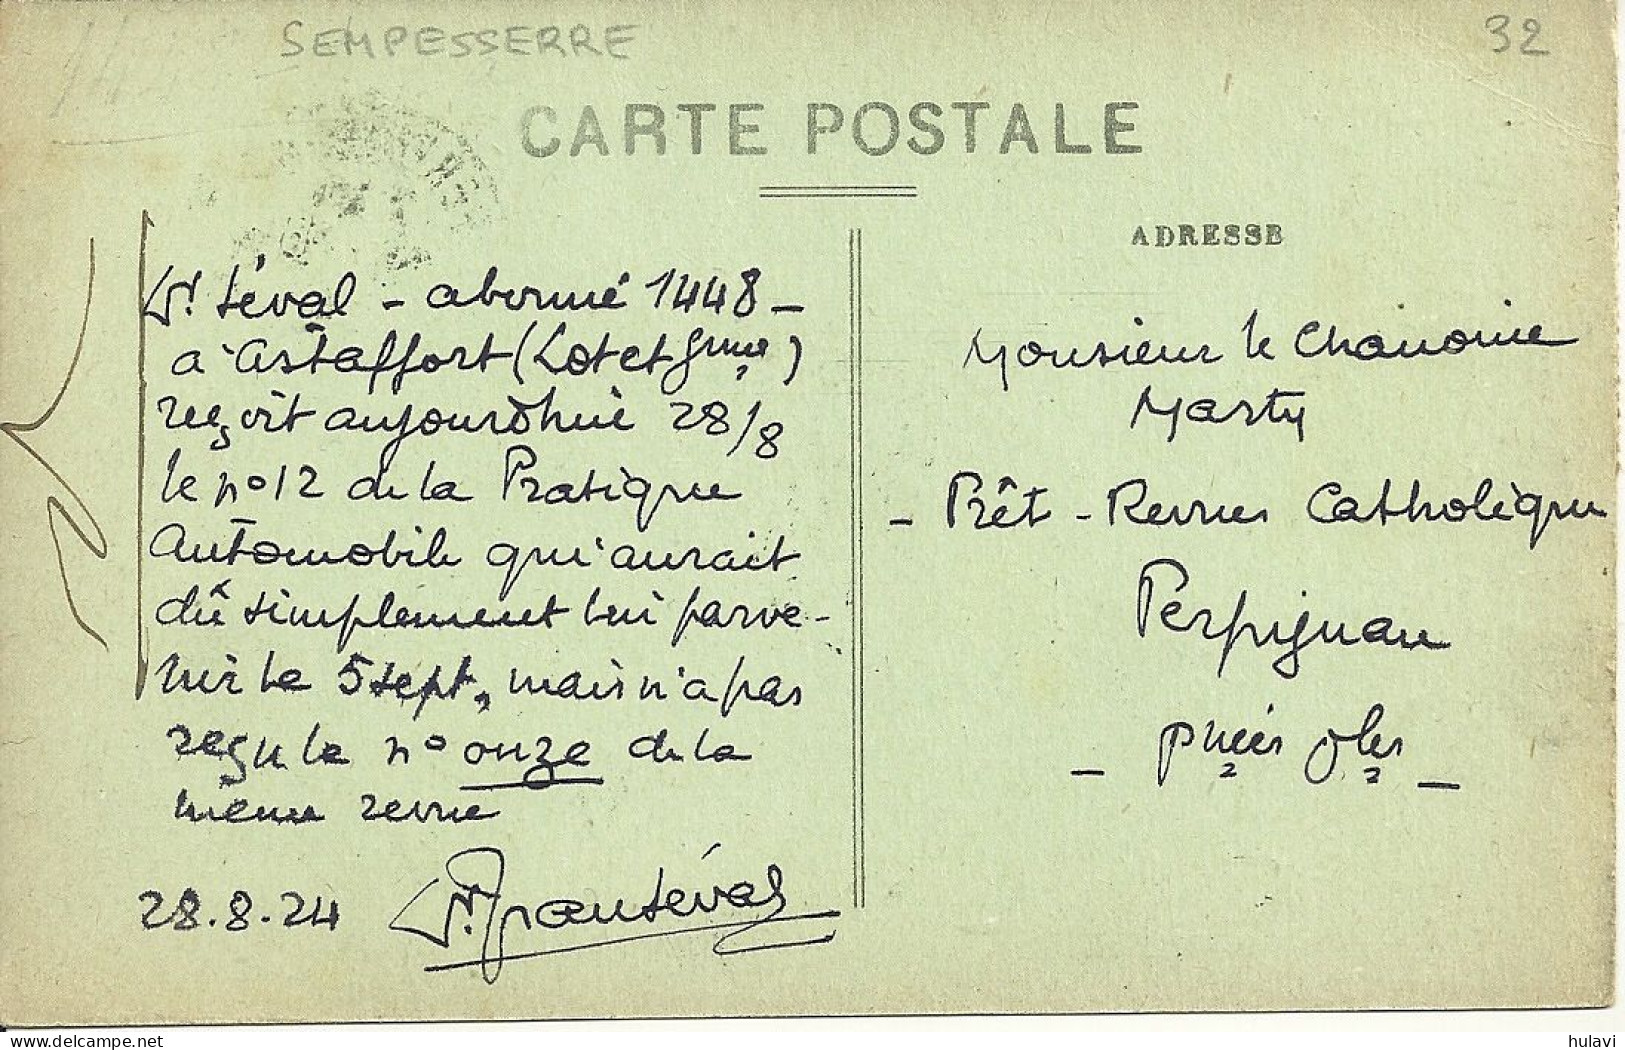 SEMPESSERRE
32
CARTE POSTALE
ADRESSE
téval - abonné 1448 -
à Astaffort (Lot et Gnne)
reçoit aujourd'hui 28/8
le n° 12 de la Pratique
Automobile qui aurait
dû simplement lui parve-
nir le 5 sept, mais n'a pas
reçu le n° onze de la
même revue
28.8.24
Monsieur le Chanoine
Marty
- Prêt - Revues Catholique
Perpignan
- Pnées Oles -
hulavi